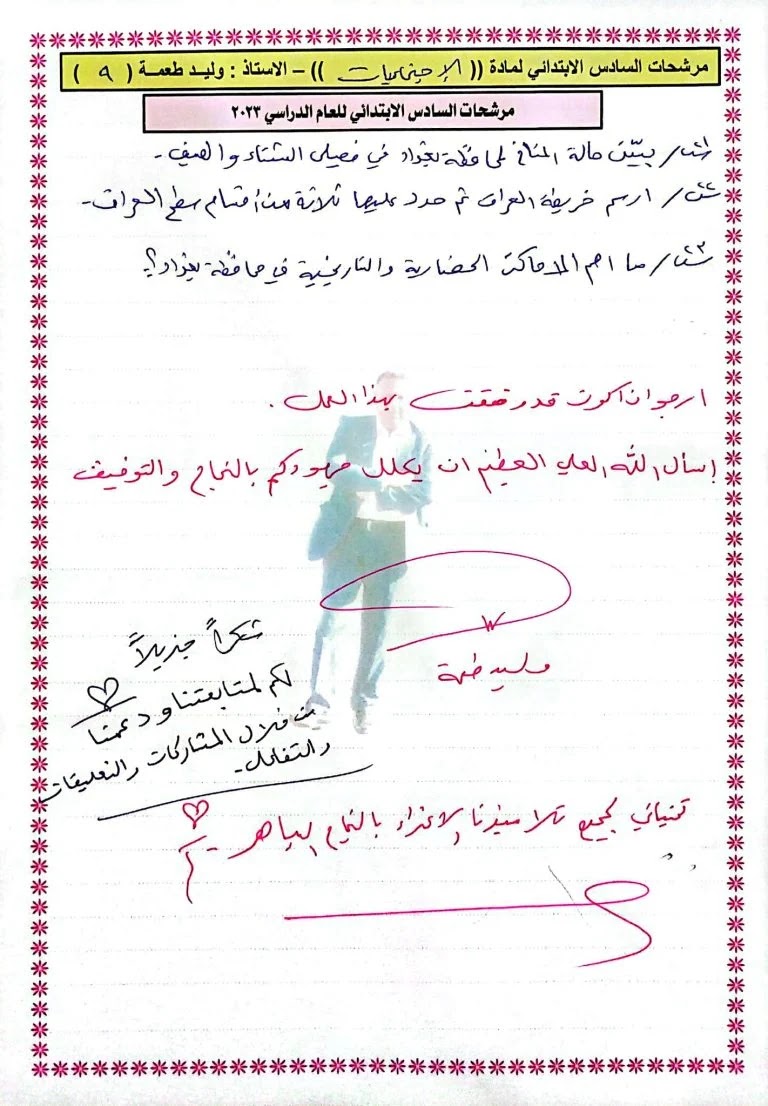 مرشحات السادس الابتدائي لمادة (( الإجتماعيات )) – الاستاذ : وليد طعمة ( ٩ )
مرشحات السادس الابتدائي للعام الدراسي ٢٠٢٣
س١/ بيّن حالة المناخ لمحافظة بغداد في فصلي الشتاء والصيف.
س٢/ ارسم خريطة العراق ثم حدد عليها ثلاثة من أقسام سطح العراق.
س٣/ ما اهم الاماكن الحضارية والتاريخية في محافظة بغداد؟
ارجو ان اكون قد وفقت بهذا العمل .
إسأل الله العلي العظيم ان يكلل جهودكم بالنجاح والتوفيق
وليد طعمة
شكراً جزيلاً
لكم لمتابعتنا ودعمنا
من خلال المشاركات والتعليقات
والتفاعل.
تمنياتي لجميع تلاميذنا الاعزاء بالنجاح الباهر